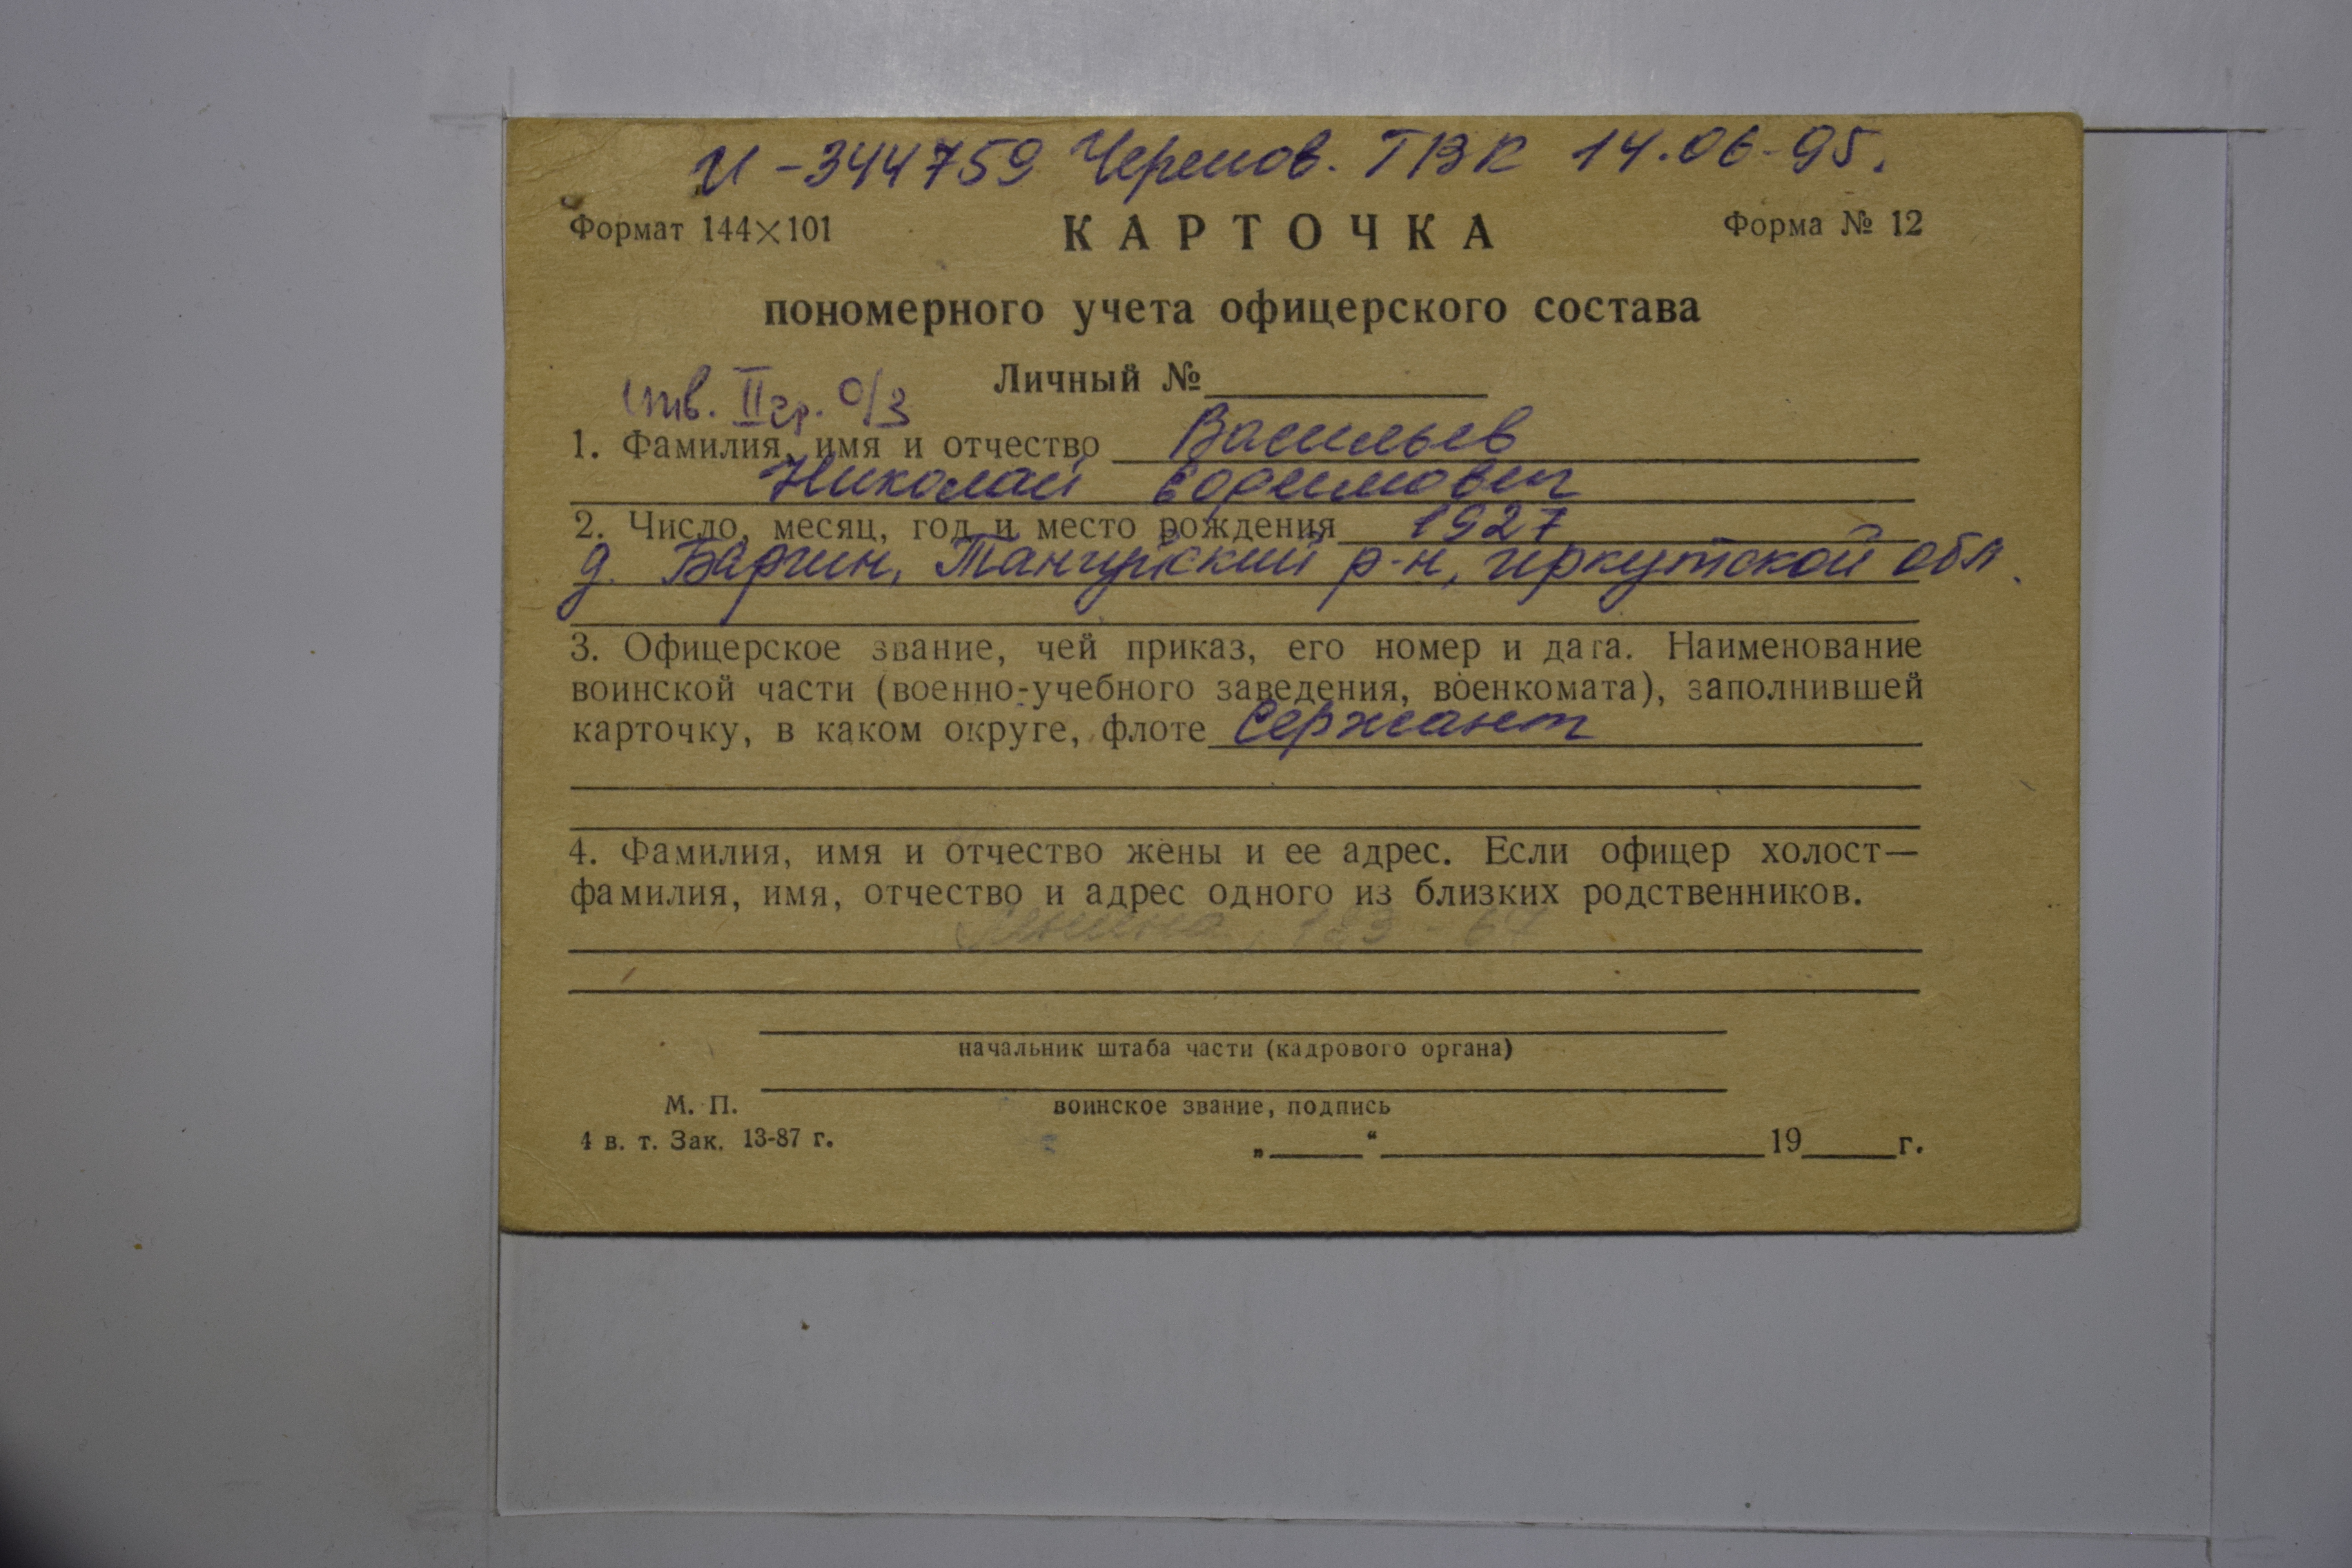 И-344759 Черемов. ГВК 14.06-95.
Формат 144×101 КАРТОЧКА Форма № 12
пономерного учета офицерского состава
Личный №
инв. II гр. О/З
1. Фамилия, имя и отчество Васильев
Николай Ефимович
2. Число, месяц, год и место рождения 1927
д. Барчин, Тангуйский р-н, иркутской обл.
3. Офицерское звание, чей приказ, его номер и дата. Наименование
воинской части (военно-учебного заведения, военкомата), заполнившей
карточку, в каком округе, флоте Сержант
4. Фамилия, имя и отчество жены и ее адрес. Если офицер холост—
фамилия, имя, отчество и адрес одного из близких родственников.
начальник штаба части (кадрового органа)
М. П. воинское звание, подпись
4 в. т. Зак. 13-87 г. „ “ 19 г.